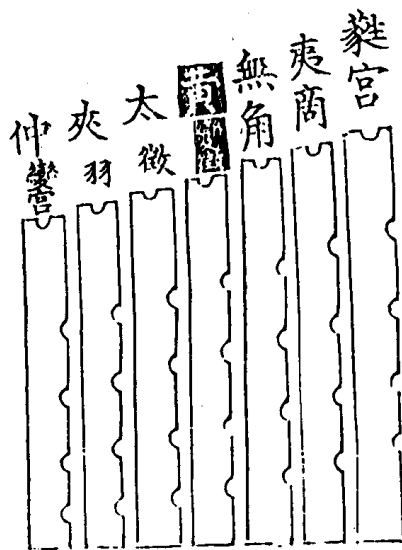 蕤宮
夷商
無角
黃
太徵
夾羽
仲變宮